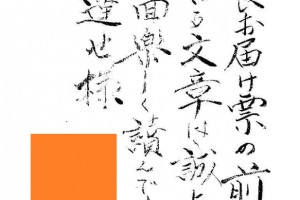 お届け票の前
文章は誠に
面楽しく讀んで
達也様